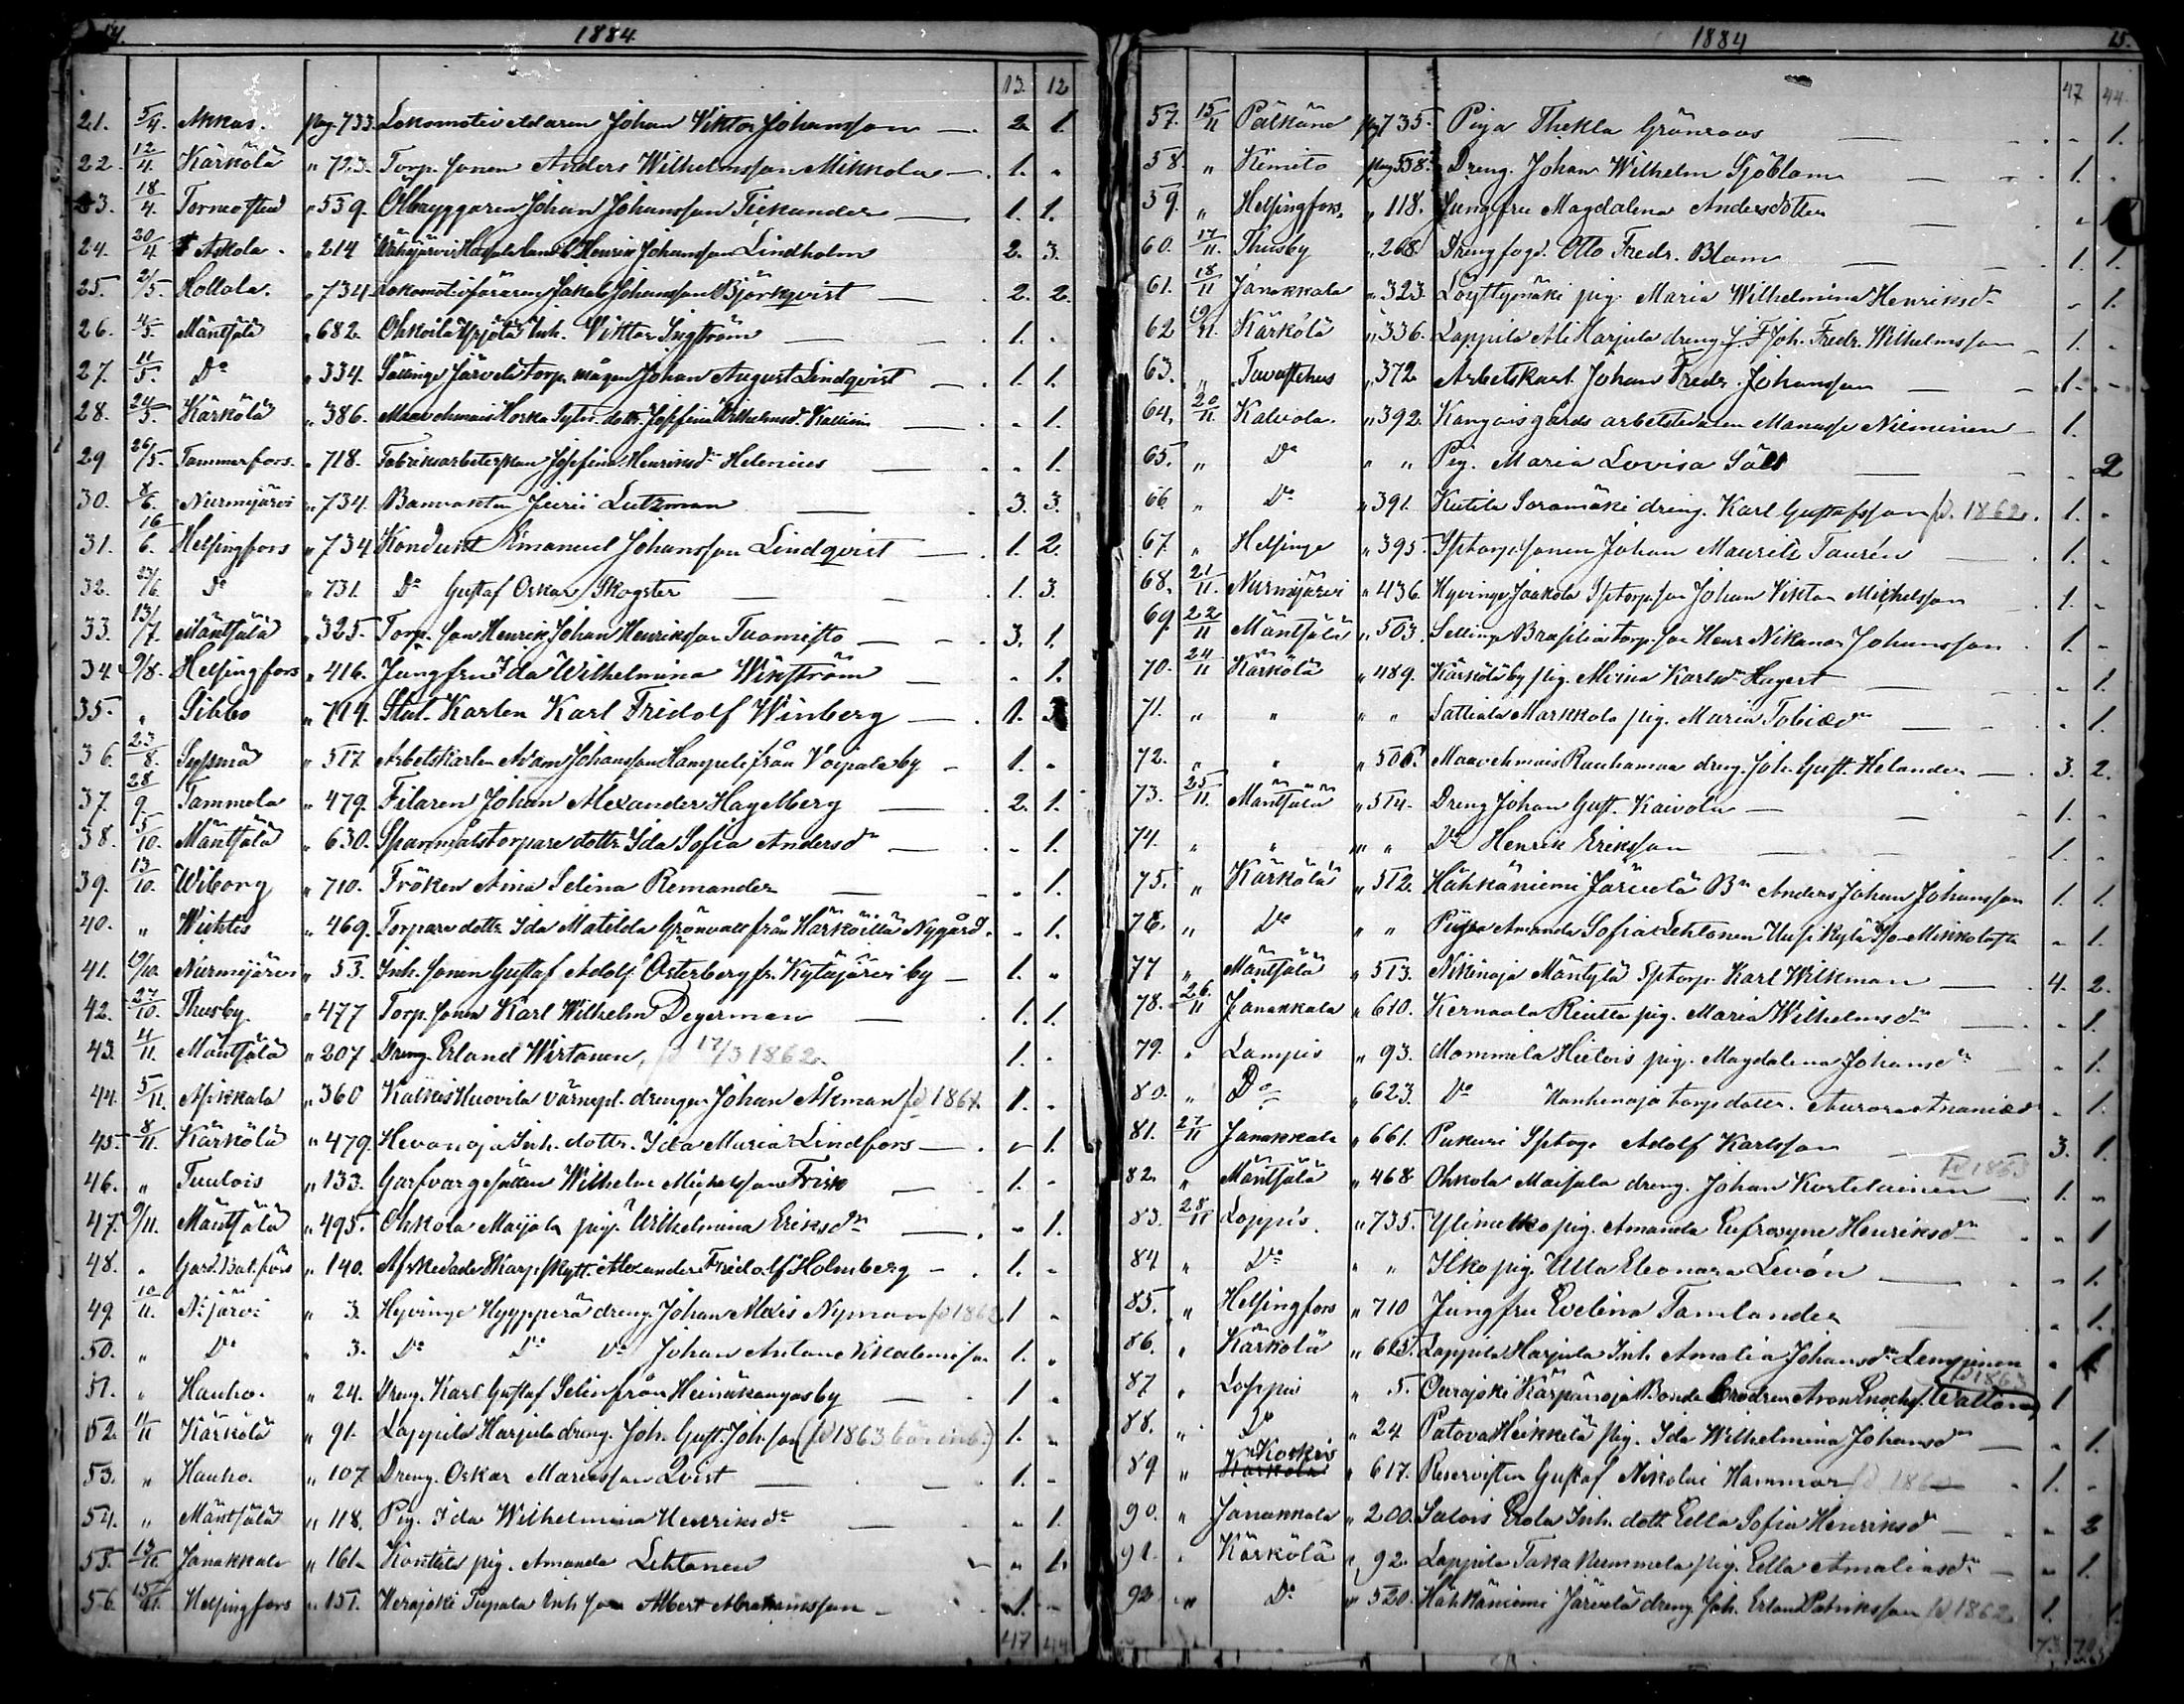 14. 1884
13. 12
21. 5/4. Akkas. pag. 733. Lokomotiv eldaren Johan Viktor Johansson — 2. 1.
22. 12/4. Kärkölä " 723. Torp. sonen Anders Wilhelmsson Mikkola — 1. "
23. 18/4. " 539. Ölbryggaren Johan Johansson Tickander — 1. 1.
24. 20/4 Askola. " 214 Henrik Johansson Lindholm 2. 3.
25. 2/5. Hollola. " 734 Lokomotivföraren Jakob Johansson Björkqvist — 2. 2.
26. 4/5. Mäntsälä " 682. Ohkoila Yrjölä Inh. Viktor Sigström — 1. "
27. 11/5. Do " 334. Sälinge Järvelä torp. mågen Johan August Lindqvist — 1. 1.
28. 24/5. Kärkölä " 386. Maavehmais Koska dottr. Josefina Wilhelmsdr Kallin — " 1.
29 26/5. Tammerfors. " 718. Fabriksarbeterskan Josefina Henriksdr Helenius — " 1.
30. 8/6. Nurmijärvi " 734. Banvakten Jurii Lutzman — 3. 3.
31. 16/6. Helsingfors " 734 Kondukt Emanuel Johansson Lindqvist — 1. 2.
32. 23/6. Do " 731. Do Gustaf Oskar Skogster — 1. 3.
33. 13/7. Mäntsälä " 325. Torp. son Henrik Johan Henriksson Tuomisto — 3. 1.
34. 9/8. Helsingfors " 416. Jungfru Ida Wilhelmina Wikström — " 1.
35. " Sibbo " 719. Stat. Karlen Karl Fridolf Winberg — 1. 3
36. 23/8. Sysmä " 517 Arbetskarlen Adam Johansson Hampele från Voipala by — 1. "
37. 28/9. Tammela " 479. Filaren Johan Alexander Hagelberg — 2. 1.
38. 5/10. Mäntsälä " 630. Spanmålstorpare dottr. Ida Sofia Andersdr — " 1.
39. 13/10. Wiborg " 710. Fröken Aina Selina Remander — " 1.
40. " Wichtis " 469. Torpare dottr. Ida Matilda Grönvall från Härköilä Nygård. " 1.
41. 19/10. Nurmijärvi " 53. Inh. sonen Gustaf Adolf Österberg fr. Kytäjärvi by — 1. "
42. 27/10. Thusby " 477 Torp. sonen Karl Wilhelm Degerman — 1. 1.
43. 4/11. Mäntsälä " 207 Dreng. Erland Wirtanen, fd 17/3 1862. 1. "
44. 5/11. Asikkala " 360 Kalkis Huovila värnepl. drengen Johan Åkman fd 1861. 1. "
45. 8/11. Kärkölä " 479. Hevanoja Inh. dottr. Ida Maria Lindfors — " 1.
46. " Tuulois " 133. Garfvargesällen Wilhelm Michelsson Frisk — 1. "
47. 9/11. Mäntsälä " 495. Ohkola Maijala pig. Wilhelmina Eriksdr — " 1.
48. " Gard. Bat. förs " 140. Afskedade Skarpskytt. Alexander Fridolf Holmberg — 1. "
49. 10/11. N:järvi " 3. Hyvinge Hyypperä dreng. Johan Alexis Nyman fd 1862 1 "
50. " Do " 3. Do Do Do Johan Anton 1. "
51. " Hauho. " 24. Dreng. Karl Gustaf Selin från Heinäkangas by — 1 "
52. 11/11 Kärkölä " 91. Lappila Harjula dreng. Joh. Gust. Joh.son (fd 1863 ) 1. "
53. " Hauho. " 107 Dreng. Oskar Mariesson Qvist — 1. "
54. " Mäntsälä " 118. Pig. Ida Wilhelmina Henriksdr — " 1.
55. 13/11. Janakkala " 161. Konttila pig. Amanda Lehtonen " 1.
56. 15/11. Helsingfors " 151. Herajoki Tupala Inh son Albert Abrahamsson — 1. "
47 44
1884 15.
47 44.
57. 15/11 Pälkäne pag 735. Piga Thekla Grönroos — " 1.
58. " Kimito pag 538. Dreng. Johan Wilhelm Sjöblom — 1. "
59. " Helsingfors. " 118. Jungfru Magdalena Andersdotter — "
60. 17/11. Thusby " 268. Drengfogd. Otto Fredr. Blom — 1. 1.
61. 18/11 Janakkala " 323. Löyttymäki pig. Maria Wilhelmina Henriksdr " 1.
62 19/11. Kärkölä " 336. Lappila Ali Harjula dreng. J. F Joh. Fredr. Wilhelmsson 1. "
63. " Tavastehus " 372 Arbetskarl. Johan Fredr. Johansson — 1. "
64. 20/11 Kalvola. " 392. Kangais gårds arbetsledaren Manasse Nieminen — 1.
65. " Do " " Pig. Maria Lovisa — " 2
66 " Do " 391. Kutila Soromäki dreng. Karl Gustafsson fd. 1862. 1. "
67. " Helsinge " 395. Sptorp. sonen Johan Maurits Taurén — 1. "
68. 21/11. Nurmijärvi " 436. Hyvinge Jaakola Sptorp. son Johan Viktor Michelsson 1. "
69. 22/11 Mäntsälä " 503. Sellinge Brasilia torp. son Henr Nikanor Johansson 1. "
70. 24/11 Kärkölä " 489. Kärkölä by pig. Alvina Karlsdr Hagert — " 1.
71. " " " " Sattiala Markkola pig. Maria Tobiasdr — " 1.
72. " " " 506. Maavehmais Rauhamaa dreng. Joh. Gust. Helander — 3. 2.
73. 25/11. Mäntsälä " 514. Dreng Johan Gust. Kaivola — 1. "
74. " " " " Do Henrik Eriksson — 1. "
75. " Kärkölä " 512. Hähkäniemi Järvelä Bn Anders Johan Johansson 1. 1.
76. " Do " " Pigan Amanda Sofia Lehtonen Uusikylä " 1.
77 " Mäntsälä " 513. Nikinoja Mäntylä Sptorp. Karl Wilkman — 4. 2.
78. 26/11 Janakkala " 610. Kernaala Riutta pig. Maria Wilhelmsdr — " 1.
79. " Lampis " 93. Mommila Hietois pig. Magdalena Johansdr " 1.
80. " Do " 623. Do Hankenoja torp. dottr. Aurora Ananiasdr " 1.
81. 27/11 Janakkala " 661. Pukuri Sptorp Adolf Karlsson 3. 1.
82. " Mäntsälä " 468 Ohkola Maijala dreng. Johan Kostelainen fd 1863 1. "
83. 28/11 Loppis. " 735. pig. Amanda Eufrosyne Henriksdr " 1
84 " Do " " Ilko pig. Ulla Eleonora Levón — " 1.
85. " Helsingfors " 710 Jungfru Evelina Tamlander " 1.
86. " Kärkölä " 625. Lappila Harjula Inh Amalia Johansdr Lemppinen " 1.
87 " Loppis " 5. Ourajoki Kärpänoja Bonde brodren Aron Enochss. Wallon fd 1863 1
88. " Do " 24 Patova Heikkilä pig. Ida Wilhelmina Johansdr — " 1.
89 " Koskis " 617. Reservisten Gustaf Nikolai Hammar 1. "
90. " Janakkala " 200. Salois Erola Inh. dottr. Eella Sofia Henriksdr — " 2
91. " Kärkölä " 92. Lappila Taka Nummela pig. Eella Amaliasdr — " 1.
92 " Do " 520. Hähkäniemi Järvelä dreng. Joh. Erland Patriksson fd 1862 1.
73. 70